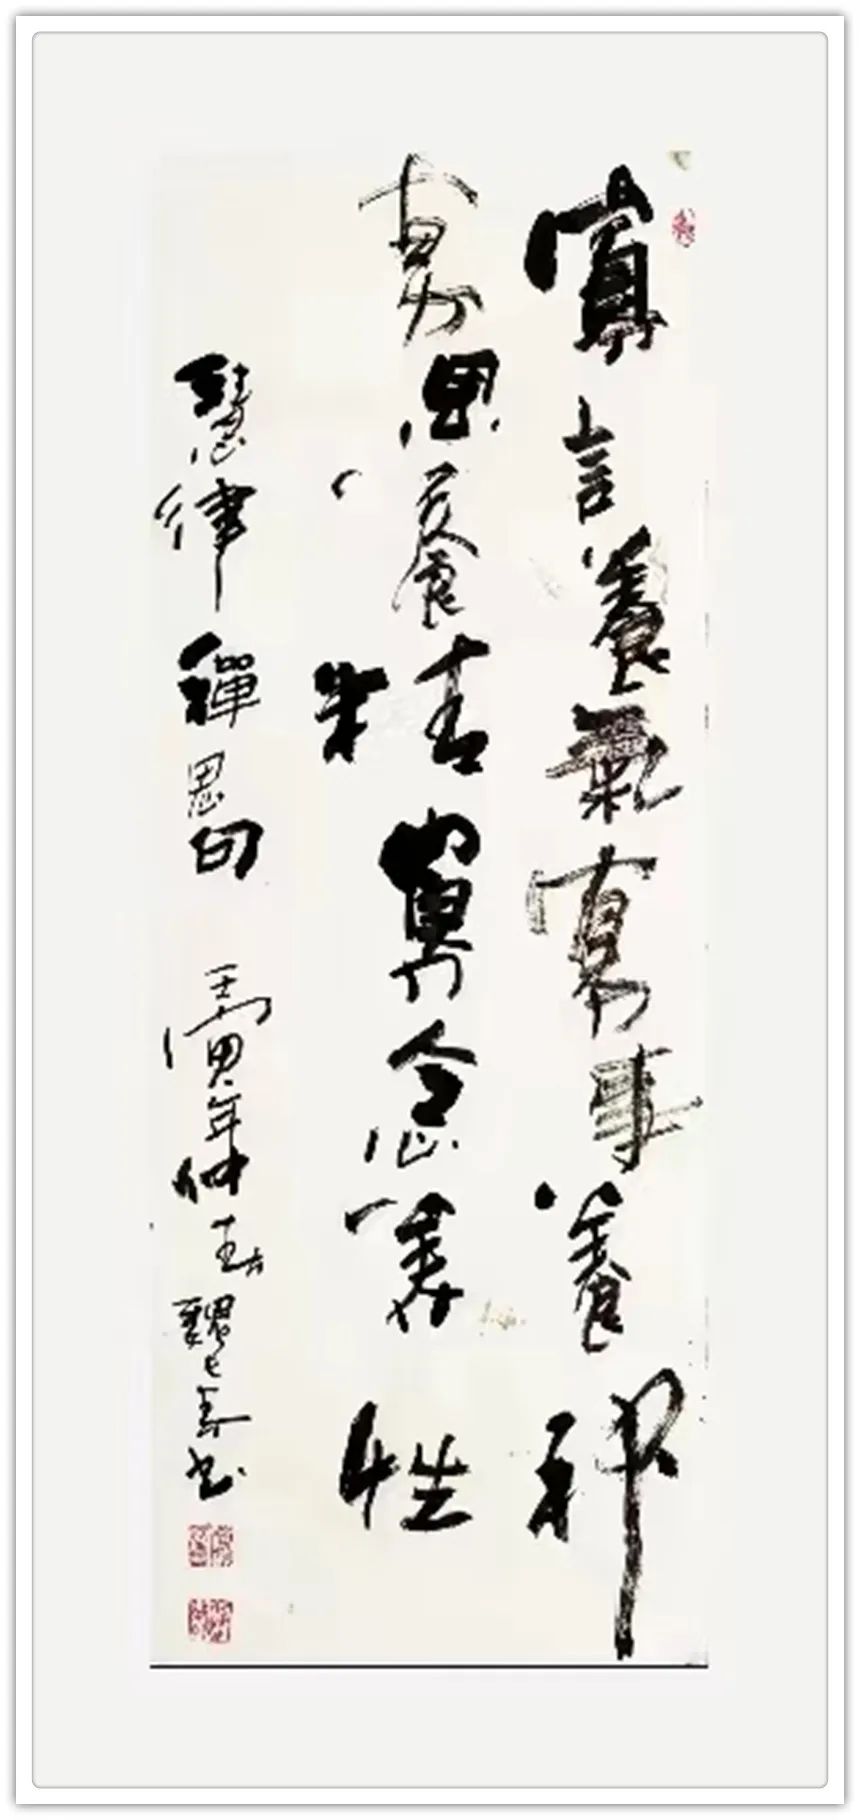 寡言養氣寡事養神
寡思養精寡念養性
慧律禪思句 壬寅年仲春魏书